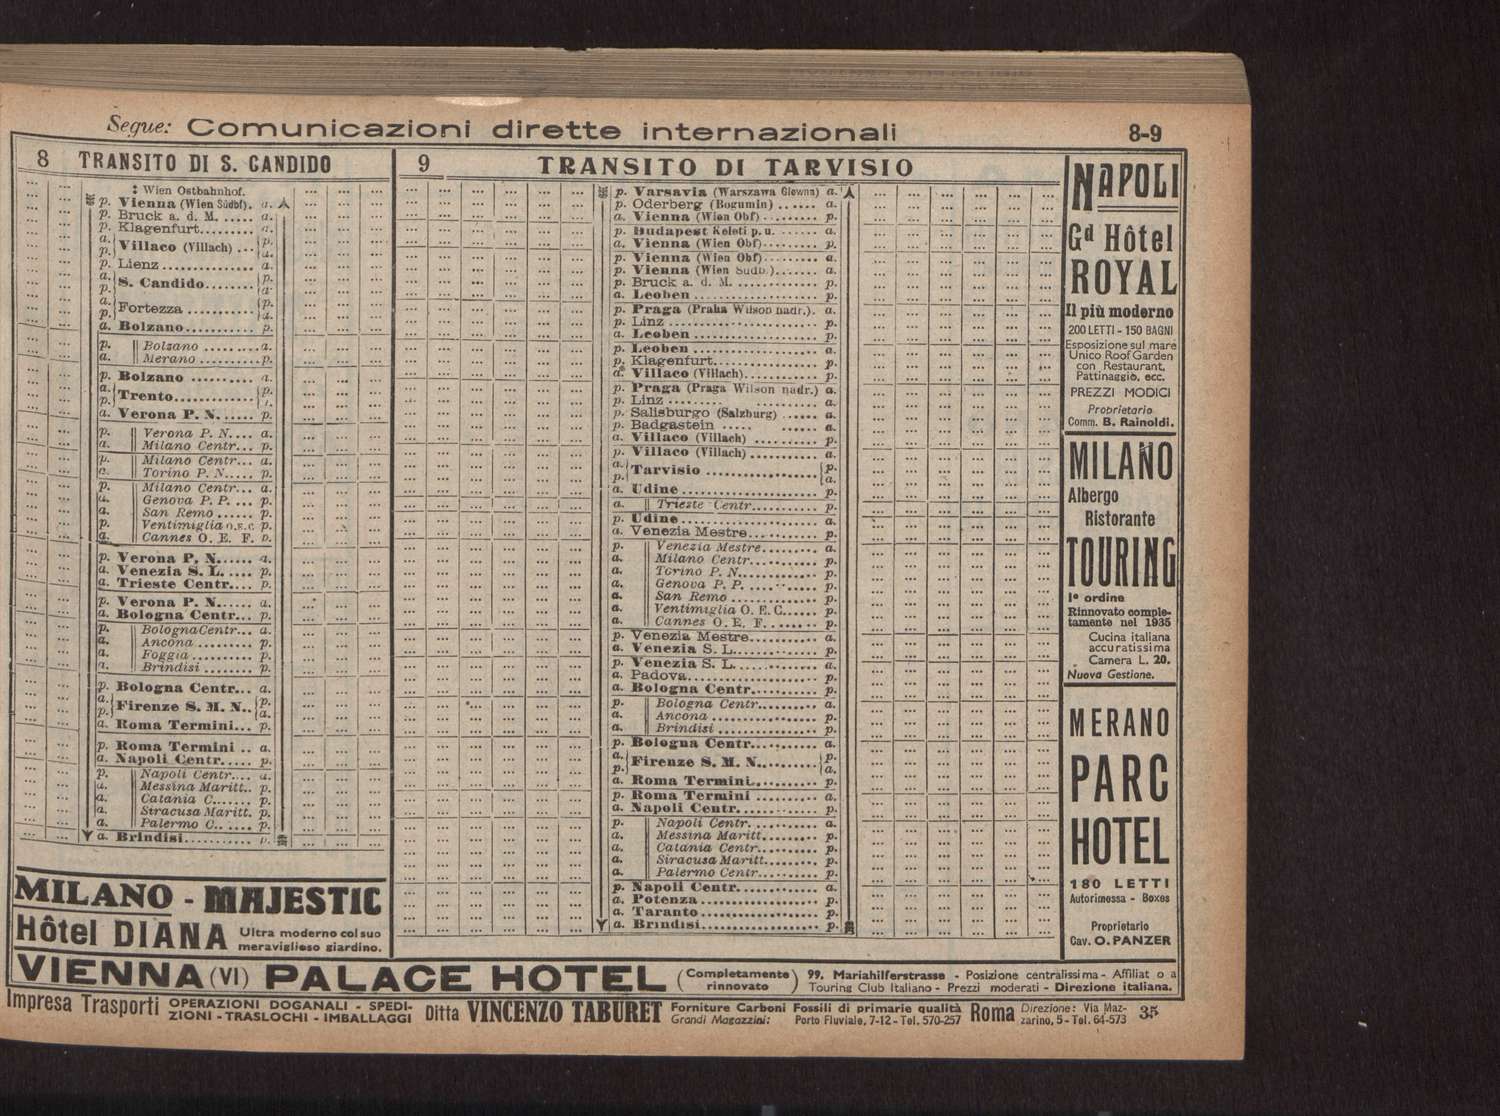 Segue: Comunicazioni dirette internazionali 8-9
8 TRANSITO DI S. CANDIDO
Wien Ostbahnhof.
p. Vienna (Wien Südbf). a.
p. Bruck a. d. M. ..... a.
p. Klagenfurt......... a.
a. p. Villaco (Villach) ... p. a.
p. Lienz ............... a.
a. p. S. Candido........ p. a.
a. p. Fortezza ........... p. a.
a. Bolzano........... p.
p. Bolzano ......... a.
a. Merano .......... p.
p. Bolzano .......... a.
a. p. Trento............
a. Verona P. N...... p.
p. Verona P. N.... a.
a. Milano Centr... p.
p. Milano Centr... a.
a. Torino P. N..... p.
p. Milano Centr... a.
a. Genova P. P. ... p.
a. San Remo ...... p.
p. Ventimiglia O.E.C p.
a. Cannes O. E. F. p.
p. Verona P. N...... a.
a. Venezia S. L. .... p.
a. Trieste Centr.... p.
p. Verona P. N...... a.
a. Bologna Centr... p.
p. Bologna Centr... a.
a. Ancona ......... p.
a. Foggia .......... p.
a. Brindisi ......... p.
p. Bologna Centr... a.
a. p. Firenze S. M. N.. p. a.
a. Roma Termini... p.
p. Roma Termini .. a.
a. Napoli Centr..... p.
p. Napoli Centr.... a.
a. Messina Maritt.. p.
a. Catania C....... p.
a. Siracusa Maritt. p.
a. Palermo C.. .... p.
a. Brindisi........... p.
9 TRANSITO DI TARVISIO
p. Varsavia (Warszawa Glowna) a.
p. Oderberg (Bogumin) ...... a.
a. Vienna (Wien Obf) ......... p.
p. Budapest Keleti p. u. ....... a.
a. Vienna (Wien Obf)......... p.
p. Vienna (Wien Obf)......... a.
p. Vienna (Wien Südb.)....... a.
p. Bruck a. d. M. ............. p.
a. Leoben ..................... p.
p. Praga (Praha Wilson nadr.). a.
p. Linz ........................ p.
a. Leoben ..................... p.
p. Leoben ..................... a.
p. Klagenfurt.................. a.
a. Villaco (Villach)............ p.
p. Praga (Praga Wilson nadr.) a.
p. Linz ......... ......... a.
p. Salisburgo (Salzburg) ...... a.
p. Badgastein ..... ...... a.
a. Villaco (Villach) .......... p.
p. Villaco (Villach) ........... a.
a. p. Tarvisio ................... p. a.
a. Udine ....................... p.
a. Trieste Centr.............. p.
p. Udine ....................... a.
a. Venezia Mestre............. p.
p. Venezia Mestre......... a.
a. Milano Centr............ p.
a. Torino P. N............. p.
a. Genova P. P. .......... p.
a. San Remo .............. p.
a. Ventimiglia O. E. C...... p.
a. Cannes O. E. F. ........ p.
p. Venezia Mestre............. a.
a. Venezia S. L................ p.
p. Venezia S. L................ a.
a. Padova...................... p.
a. Bologna Centr............. p.
p. Bologna Centr.......... a.
a. Ancona ................. p.
a. Brindisi ................ p.
p. Bologna Centr............. a.
a. p. Firenze S. M. N........... p. a.
a. Roma Termini............. p.
p. Roma Termini ............ a.
a. Napoli Centr............... p.
p. Napoli Centr. .......... a.
a. Messina Maritt......... p.
a. Catania Centr.......... p.
a. Siracusa Maritt......... p.
a. Palermo Centr......... p.
p. Napoli Centr............... a.
a. Potenza..................... p.
a. Taranto..................... p.
a. Brindisi..................... p.
NAPOLI
Gd Hôtel
ROYAL
Il più moderno
200 LETTI - 150 BAGNI
Esposizione sul mare
Unico Roof Garden
con Restaurant,
Pattinaggio, ecc.
PREZZI MODICI
Proprietario
Comm. B. Rainoldi.
MILANO
Albergo
Ristorante
TOURING
1º ordine
Rinnovato comple-
tamente nel 1935
Cucina italiana
accuratissima
Camera L. 20.
Nuova Gestione.
MERANO
PARC
HOTEL
180 LETTI
Autorimessa - Boxes
Proprietario
Cav. O. PANZER
MILANO - MAJESTIC
Hôtel DIANA Ultra moderno col suo
meraviglioso giardino.
VIENNA (VI) PALACE HOTEL (Completamente rinnovato) 99, Mariahilferstrasse - Posizione centralissima - Affiliato a
Touring Club Italiano - Prezzi moderati - Direzione italiana.
Impresa Trasporti OPERAZIONI DOGANALI - SPEDI-
ZIONI - TRASLOCHI - IMBALLAGGI Ditta VINCENZO TABURET Forniture Carboni Fossili di primarie qualità
Grandi Magazzini: Porto Fluviale, 7-12 - Tel. 570-257 Roma Direzione: Via Maz-
zarino, 5 - Tel. 64-573 35